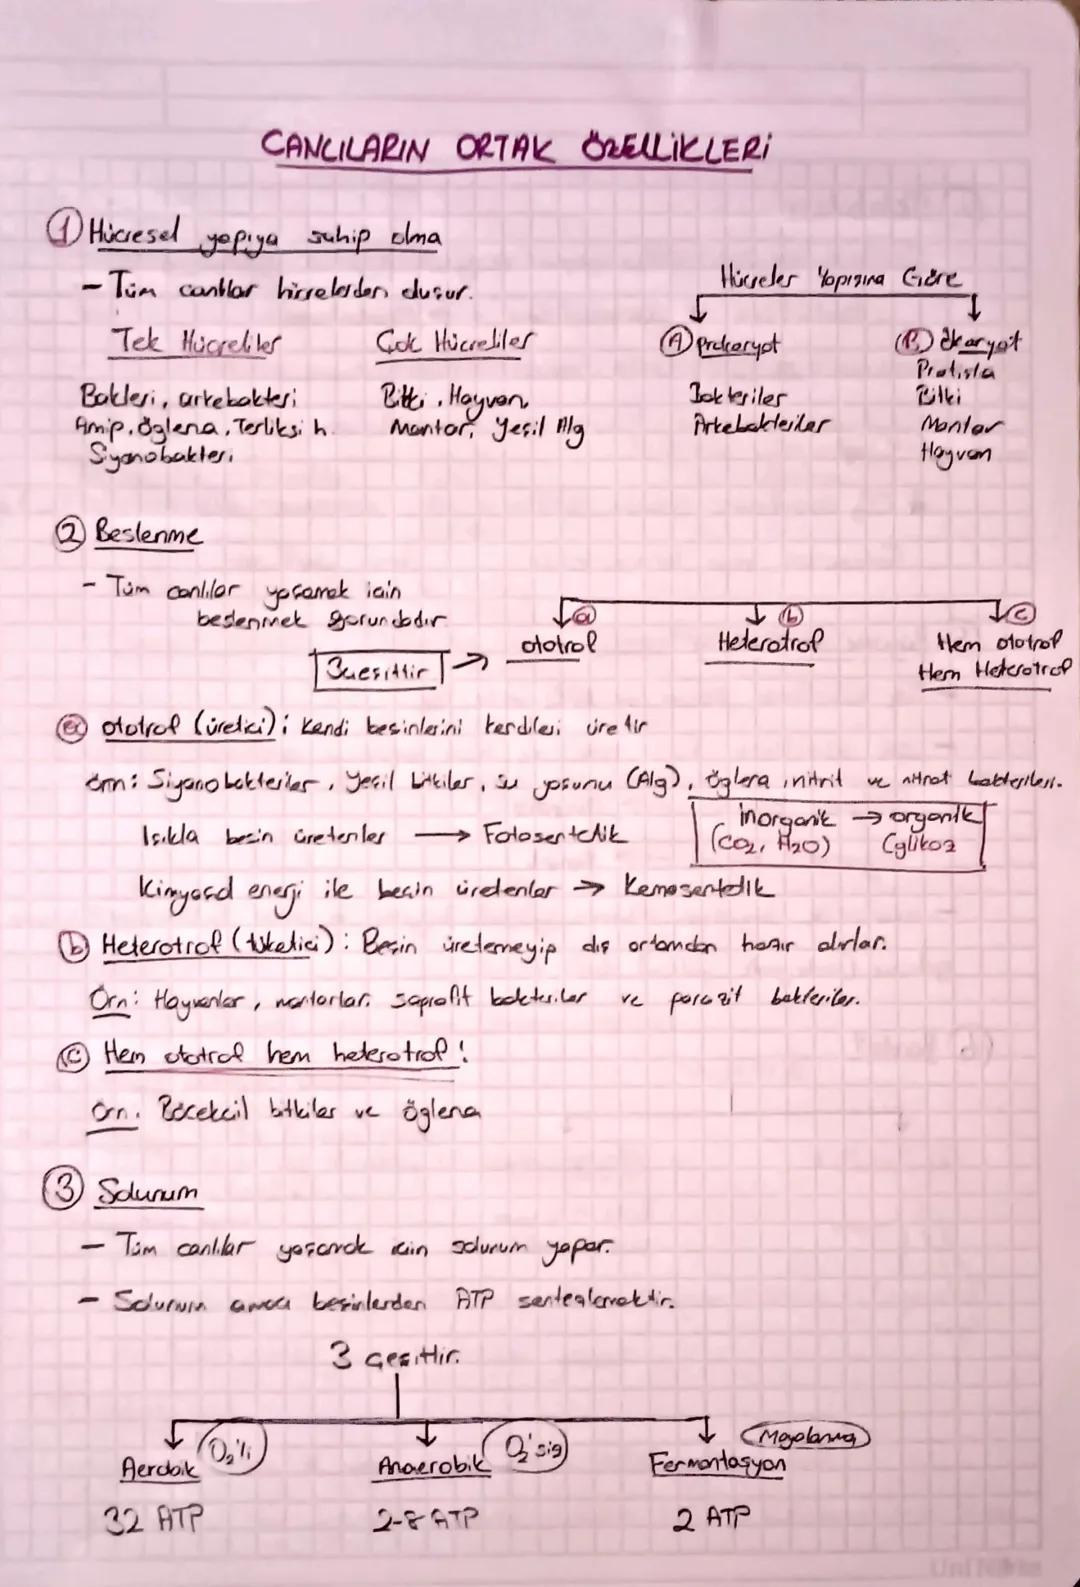 CANLILARIN ORTAK ÖZELLİKLERİ
① Hücresel yapıya sahip olma
- Tüm canlılar hücrelerden oluşur.
Tek Hücreliler
Bakteri, arkebakteri
Amip, Öglena, Terliksi h.
Siyanobakteri
Çok Hücreliler
Bitki, Hayvan,
Mantar, Yeşil Alg
Hücreler Yapısına Göre
Ⓐ Prokaryot
Bakteriler
Arkebakteriler
Ⓑ Ökaryot
Protista
Bitki
Mantar
Hayvan
② Beslenme
- Tüm canlılar yaşamak için
beslenmek zorundadır
3 çeşittir →
ⓐ ototrof
ⓑ Heterotrof
ⓒ Hem ototrof
Hem Heterotrof
ⓐ ototrof (üretici): Kendi besinlerini kendileri üretir
örn: Siyanobakteriler, Yeşil bitkiler, su yosunu (Alg), öglena, nitrit ve nitrat bakterileri.
Işıkla besin üretenler → Fotosentetik
inorganik → organik
(CO2, H2O) (glikoz
Kimyasal enerji ile besin üretenler → Kemosentetik
ⓑ Heterotrof (tüketici): Besin üretemeyip dış ortamdan hazır alırlar.
Örn: Hayvanlar, mantarlar, saprofit bakteriler ve parazit bakteriler.
ⓒ Hem ototrof hem heterotrof!
Örn. Böcekcil bitkiler ve öglena
③ Solunum
- Tüm canlılar yaşamak için solunum yapar.
- Solunum amacı besinlerden ATP sentezlemektir.
3 çeşittir.
Aerobik O2'li
32 ATP
Anaerobik O2'siz
2-8 ATP
Fermantasyon Mayalanma
2 ATP